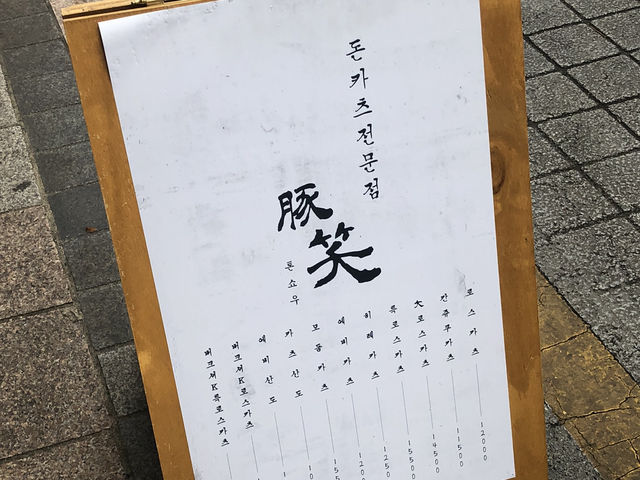 돈카츠전문점
豚笑
톤쇼우
로스카츠 12000
칸쥬쿠카츠 11500
大로스카츠 14500
특로스카츠 15500
히레카츠 1250
에비카츠 120
모듬카츠 155
카츠산도 10
에비산도 1
버크셔K로스카츠
버크셔K특로스카츠